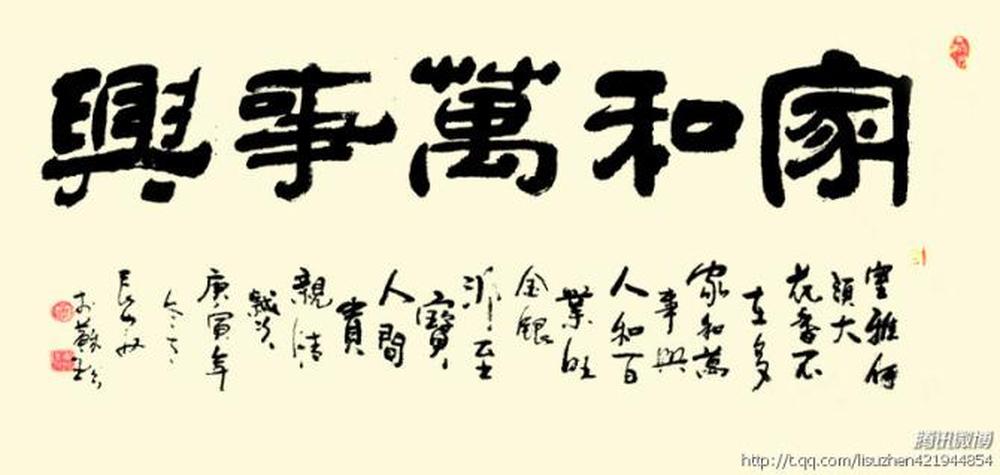 家和萬事興
室雅何
須大
花香不
在多
家和萬
事興
人和百
業旺
金銀
非至
寶
人間
貴
親情
庚寅年
腾讯微博
http://t.qq.com/lisuzhen421944854